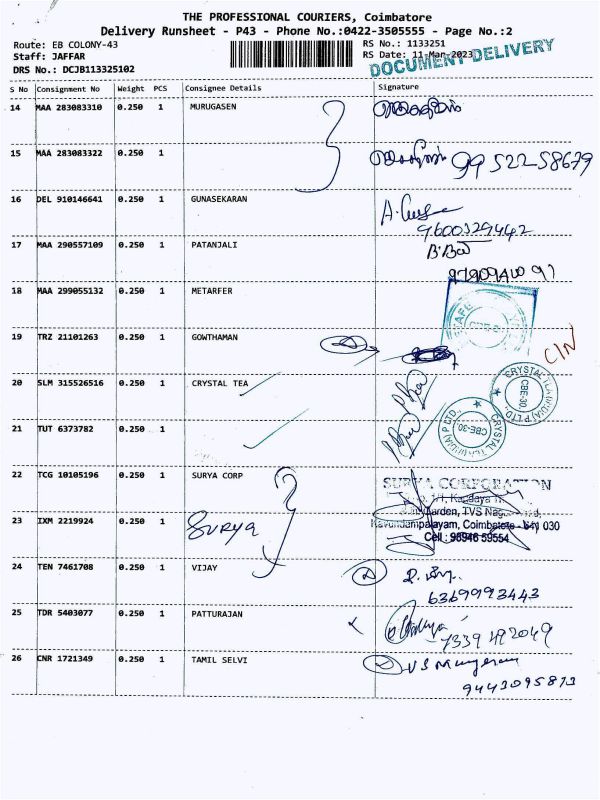 THE PROFESSIONAL COURIERS, Coimbatore
Delivery Runsheet - P43 - Phone No.:0422-3505555 - Page No.:2
Route: EB COLONY-43
RS No.: 1133251
Staff: JAFFAR
RS Date: 11-Mar-2023
DRS No.: DCJB113325102
DOCUMENT DELIVERY
S No Consignment No Weight PCS Consignee Details Signature
14 MAA 283083310 0.250 1 MURUGASEN
15 MAA 283083322 0.250 1 99522 58679
16 DEL 910146641 0.250 1 GUNASEKARAN
9600329442
17 MAA 290557109 0.250 1 PATANJALI
18 MAA 299055132 0.250 1 METARFER
19 TRZ 21101263 0.250 1 GOWTHAMAN
20 SLM 315526516 0.250 1 CRYSTAL TEA
CRYSTAL TEA (INDIA) P LTD.,
CBE-30
21 TUT 6373782 0.250 1
CRYSTAL TEA (INDIA) P LTD.,
CBE-30
22 TCG 10105196 0.250 1 SURYA CORP
SURYA CORPORATION
23 IXM 2219924 0.250 1 SURYA
Garden, TVS Nagar
Kavundampalayam, Coimbatore - 641 030
Cell : 98946 59554
24 TEN 7461708 0.250 1 VIJAY
6369993443
25 TDR 5403077 0.250 1 PATTURAJAN
7339492049
26 CNR 1721349 0.250 1 TAMIL SELVI
9443095873